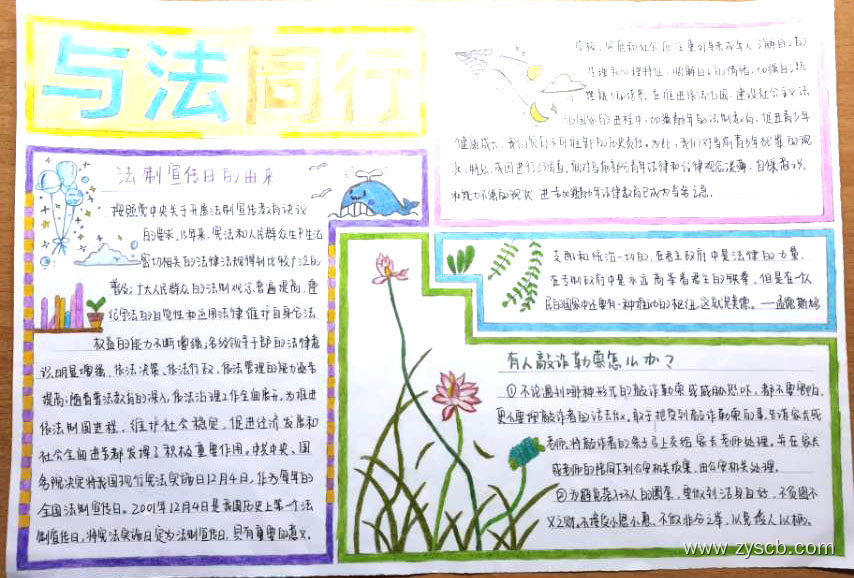 与法同行
法制宣传日的由来
按照党中央关于开展法制宣传教育决议
的要求,15年来,宪法和人民群众生产生活
密切相关的法律法规得到比较广泛的
普及,广大人民群众的法制观念普遍提高,遵
纪守法的自觉性和运用法律维护自身合法
权益的能力不断增强,各级领导干部的法律意
识明显增强,依法决策、依法行政、依法管理的能力逐步
提高;随着普法教育的深入,依法治理工作全面展开,为推进
依法制国进程,维护社会稳定,促进经济发展和
社会全面进步都发挥了积极重要作用。中共中央、国
务院决定将我国现行宪法实施日12月4日,作为每年的
全国法制宣传日。2001年12月4日是我国历史上第一个法
制宣传日。将宪法实施日定为法制宣传日,具有重要的意义。
学校、家庭和社会应注重对未成年人
生理和心理特征,
在推进依法治国,建设社会主义法
治国家的进程中,加强青少年的法制教育,促进青少年
健康成长,我们负有不可推卸的历史责任。为此,我们对当前青少年犯罪的现
状、特点、成因进行了调查,面对当前部分青年法律和公律观念淡薄,自我意识
和能力不强的现状,进一步加强青少年法律教育已成为当务之急。
支配和统治一切的,在君主政府中是法律的力量,
在专制政府中是永远高举着君主的铁拳,但是在一个人
民的国家中还要有一种推动的枢纽,这就是美德。——孟德斯鸠
有人敲诈勒索怎么办?
①不论遇到哪种形式的敲诈勒索或威胁恐吓,都不要惧怕,
更不要按敲诈者的话去做。敢于把受到敲诈勒索的事告诉家长或
老师,将敲诈者的条子马上交给家长老师处理。并在家长
或老师的陪同下到公安机关报案,由公安机关处理。
因为避免落入坏人的圈套,要做到洁身自好,不贪图不
义之财。不接受小恩小惠、不做非分之举,以免授人以柄。
www.zyscb.com